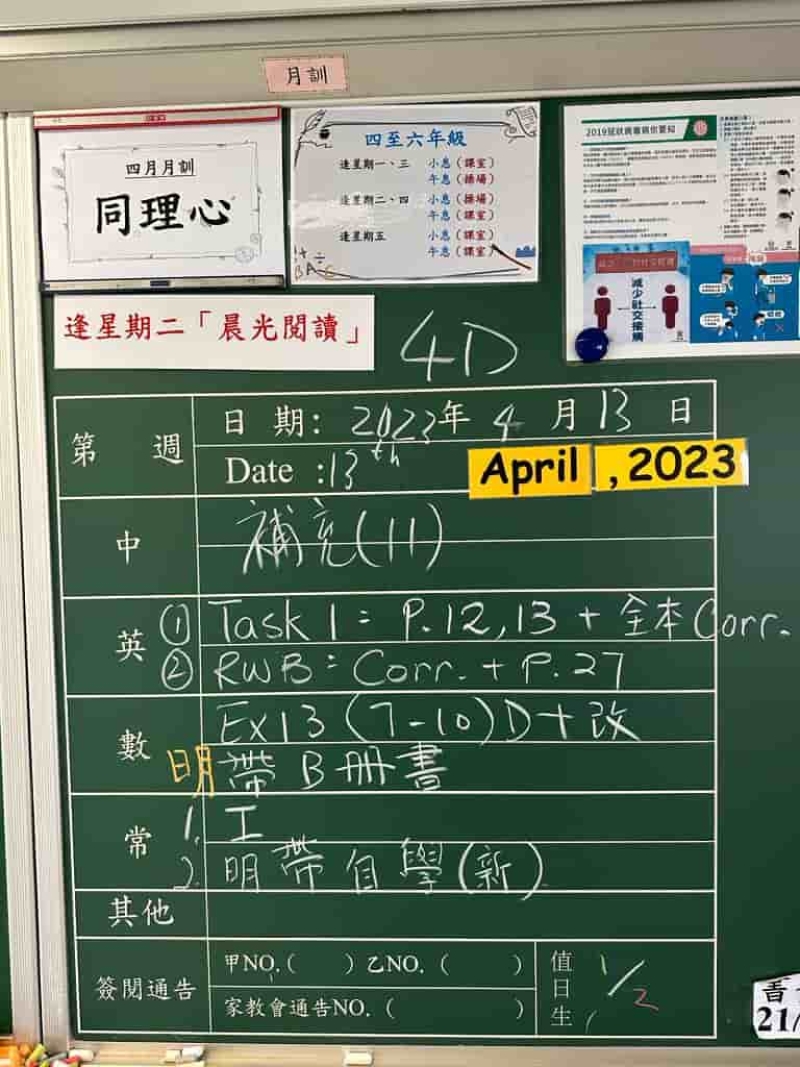 月訓
四月月訓
同理心
四至六年級
逢星期一、三 小息(課室)
午息(操場)
逢星期二、四 小息(操場)
午息(課室)
逢星期五 小息(課室)
午息(課室)
2019冠狀病毒病你要知
減少社交接觸
逢星期二「晨光閱讀」
4D
第 週
日 期: 2023年 4 月 13 日
Date :13th April ,2023
中 補充(11)
英 ① Task 1 = P.12,13 + 全本 Corr.
② RWB = Corr. + P.27
數 Ex13 (7-10)D+改
明帶 B 冊書
常 1. 工
2. 明帶自學(新)
其他
簽閱通告 甲NO.( ) 乙NO. ( )
家教會通告NO. ( )
值日生 1/2
21/